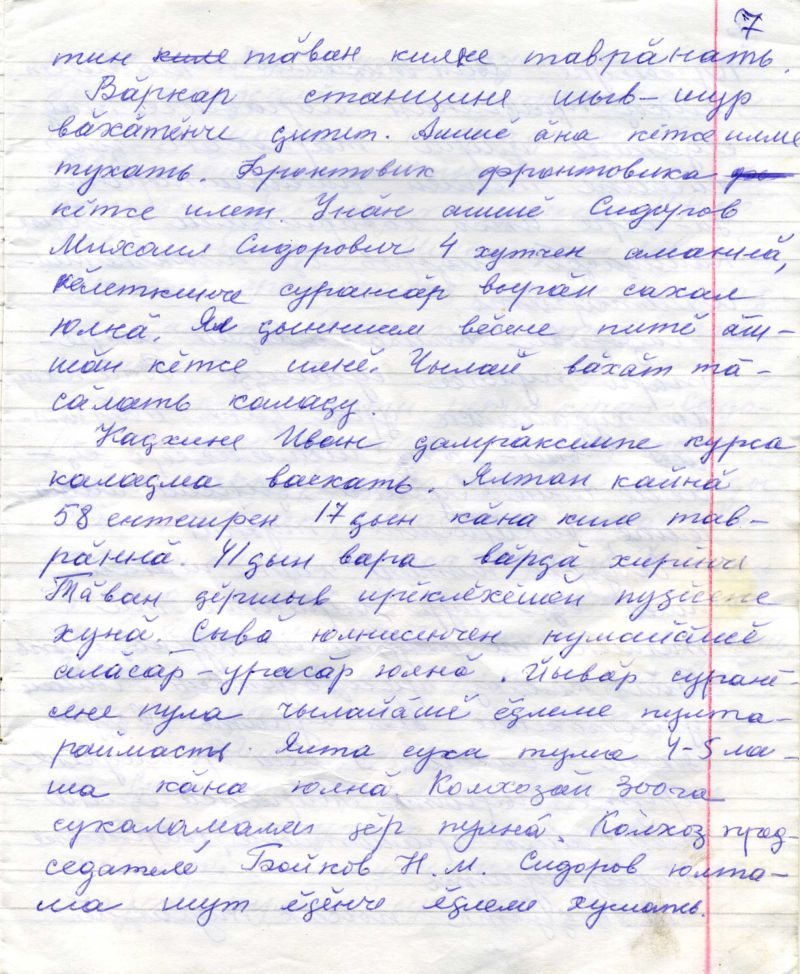 7
тин киле тăван килне таврăнать.
Вăркар станцине шыв-шур
вăхăтĕнче çитет. Ашшĕ ăна кĕтсе илме
тухать. Фронтовик фронтовика
кĕтсе илет. Унăн ашшĕ Сидоров
Михаил Сидорович 4 хутчен аманнă,
кĕлеткинче сурансăр вырăн сахал
юлнă. Ял çыннисем вĕсене питĕ ăш-
шăн кĕтсе илнĕ. Чылай вăхăт та-
сăлать калаçу.
Каçхине Иван çамрăксемпе курса
калаçма васкать. Ялтан кайнă
58 ентешрен 17 çын кăна киле тав-
рăннă. 41 çын вара вăрçă хирĕнче
Тăван çĕршыв ирĕклĕхĕшĕн пуçĕсене
хунă. Сывă юлнисенчен нумайăшĕ
алăсăр-урасăр юлнă. Йывăр суранĕ-
сене пула чылайăшĕ ĕçлеме пулта-
раймасть. Ялта суха тума 4-5 ла-
ша кăна юлнă. Колхозăн 300 га
сухаламалли çĕр пулнă. Колхоз пред-
седателĕ Бойков Н.М. Сидоров юлта-
ша шут ĕçĕнче ĕçлеме хушать.